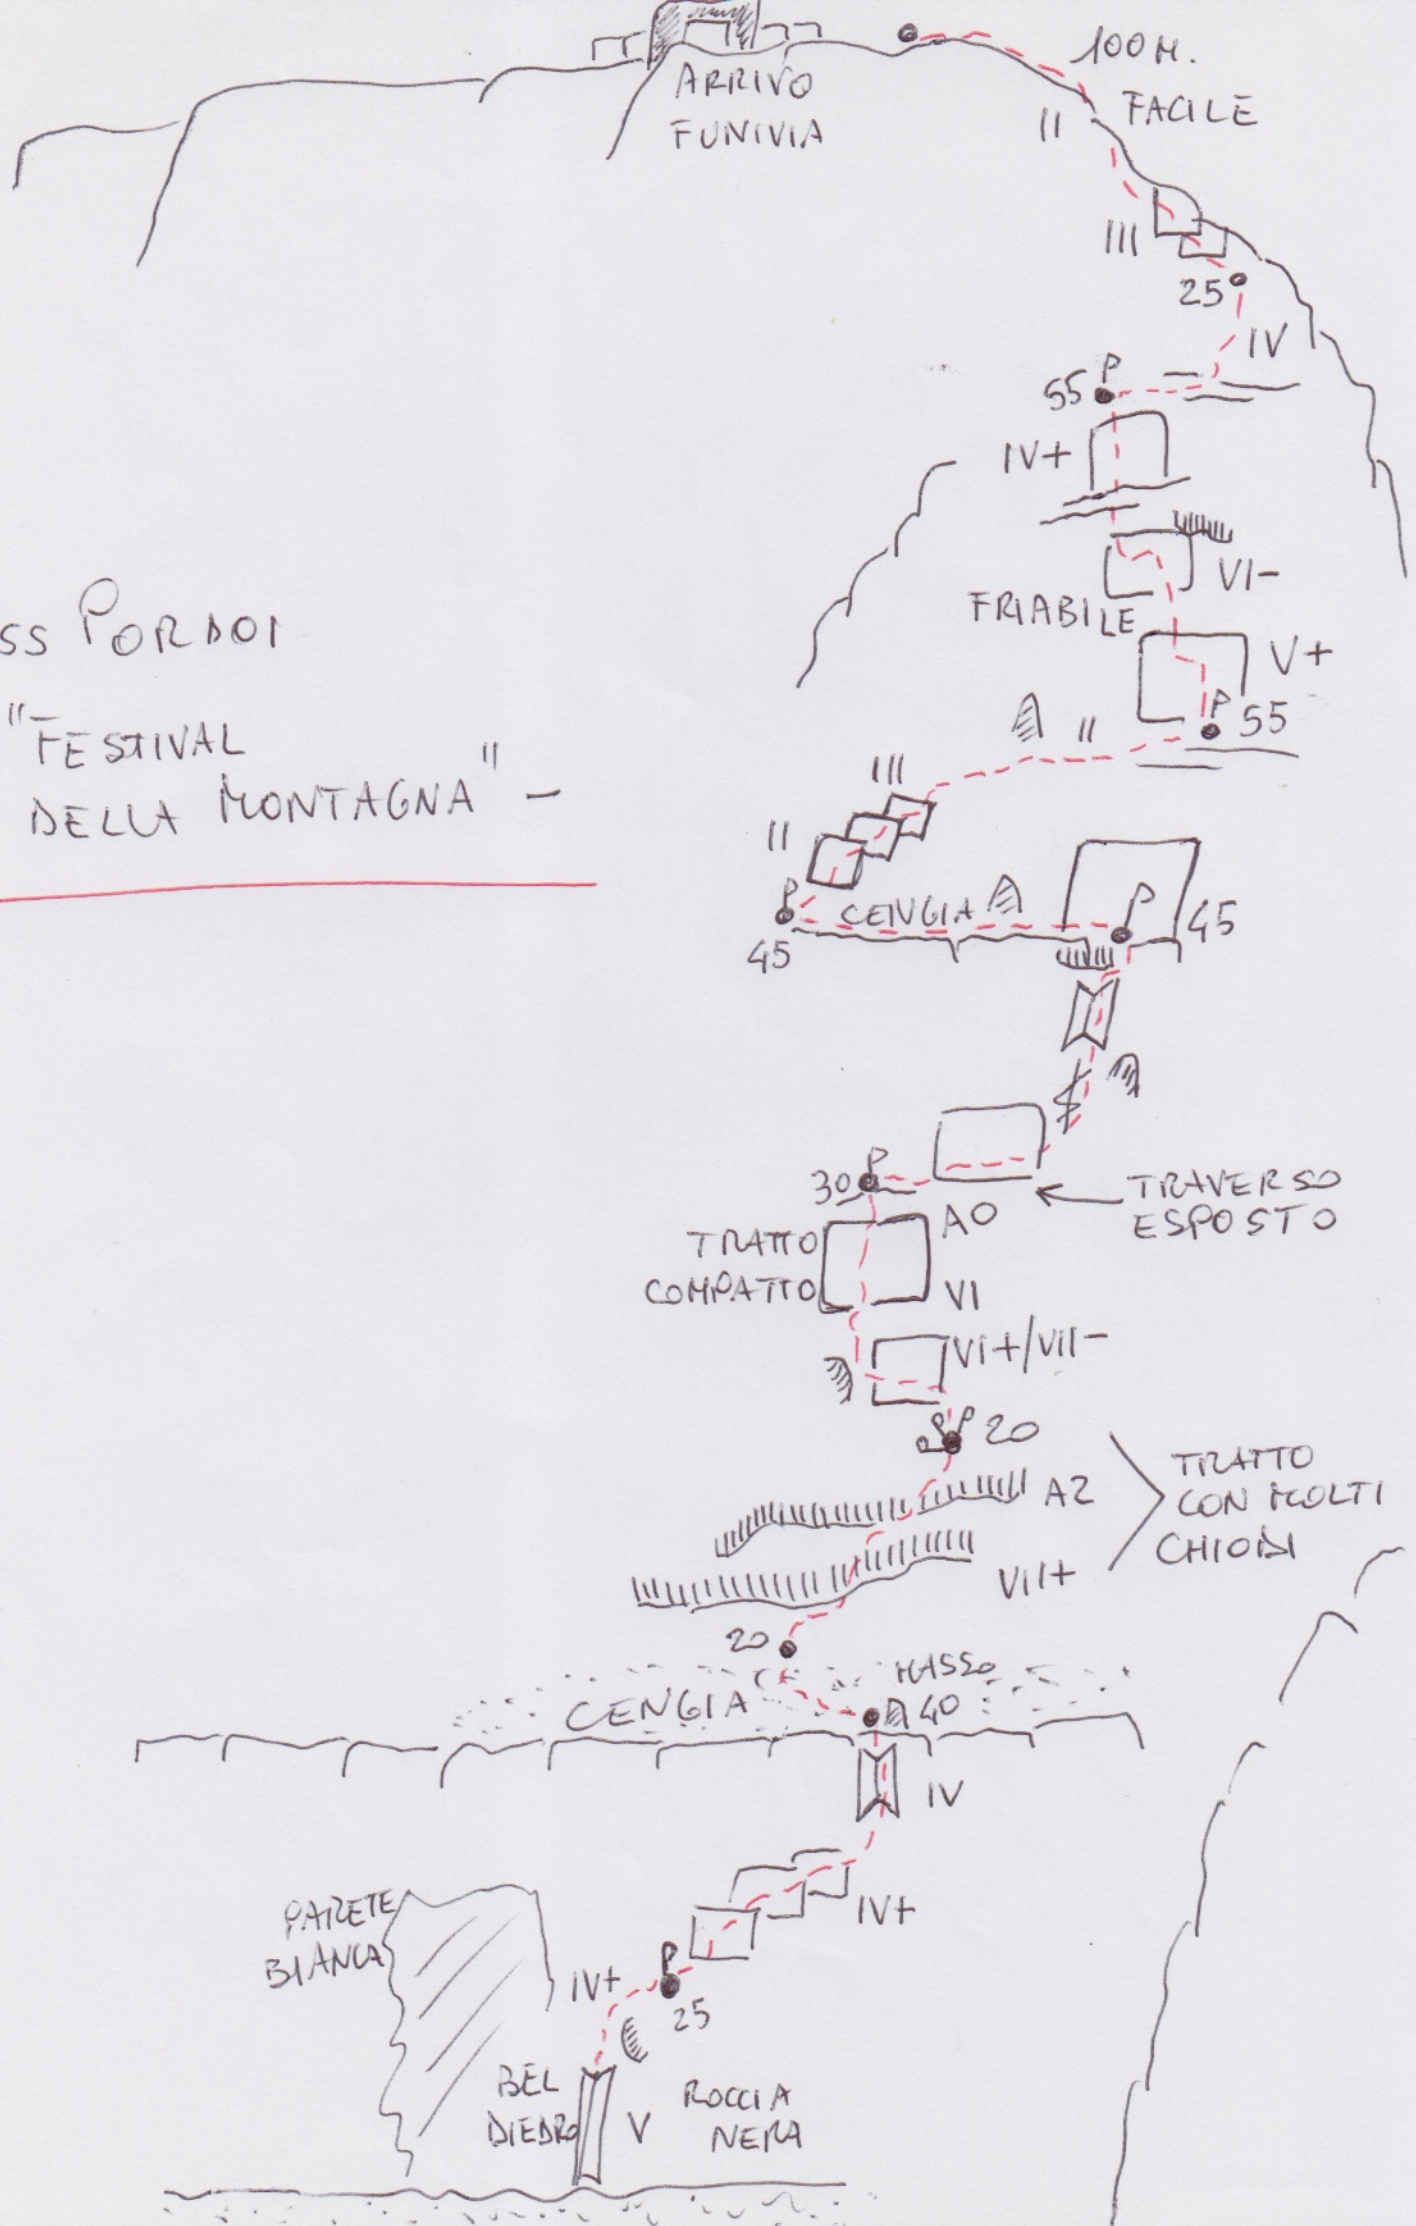 ARRIVO
FUNIVIA
100 M.
FACILE
II
III
25
IV
55 P
IV+
VI-
FRIABILE
V+
SS PORDOI
"FESTIVAL
DELLA MONTAGNA" -
P 55
II
III
II
P
CENGIA
P
45
45
P
30
A0
TRAVERSO
ESPOSTO
TRATTO
COMPATTO
VI
VI+/VII-
20
A2
TRATTO
CON MOLTI
CHIODI
VII+
20
MASSO
CENGIA
40
IV
IV+
PARETE
BIANCA
P
IV+
25
BEL
DIEDRO
V
ROCCIA
NERA